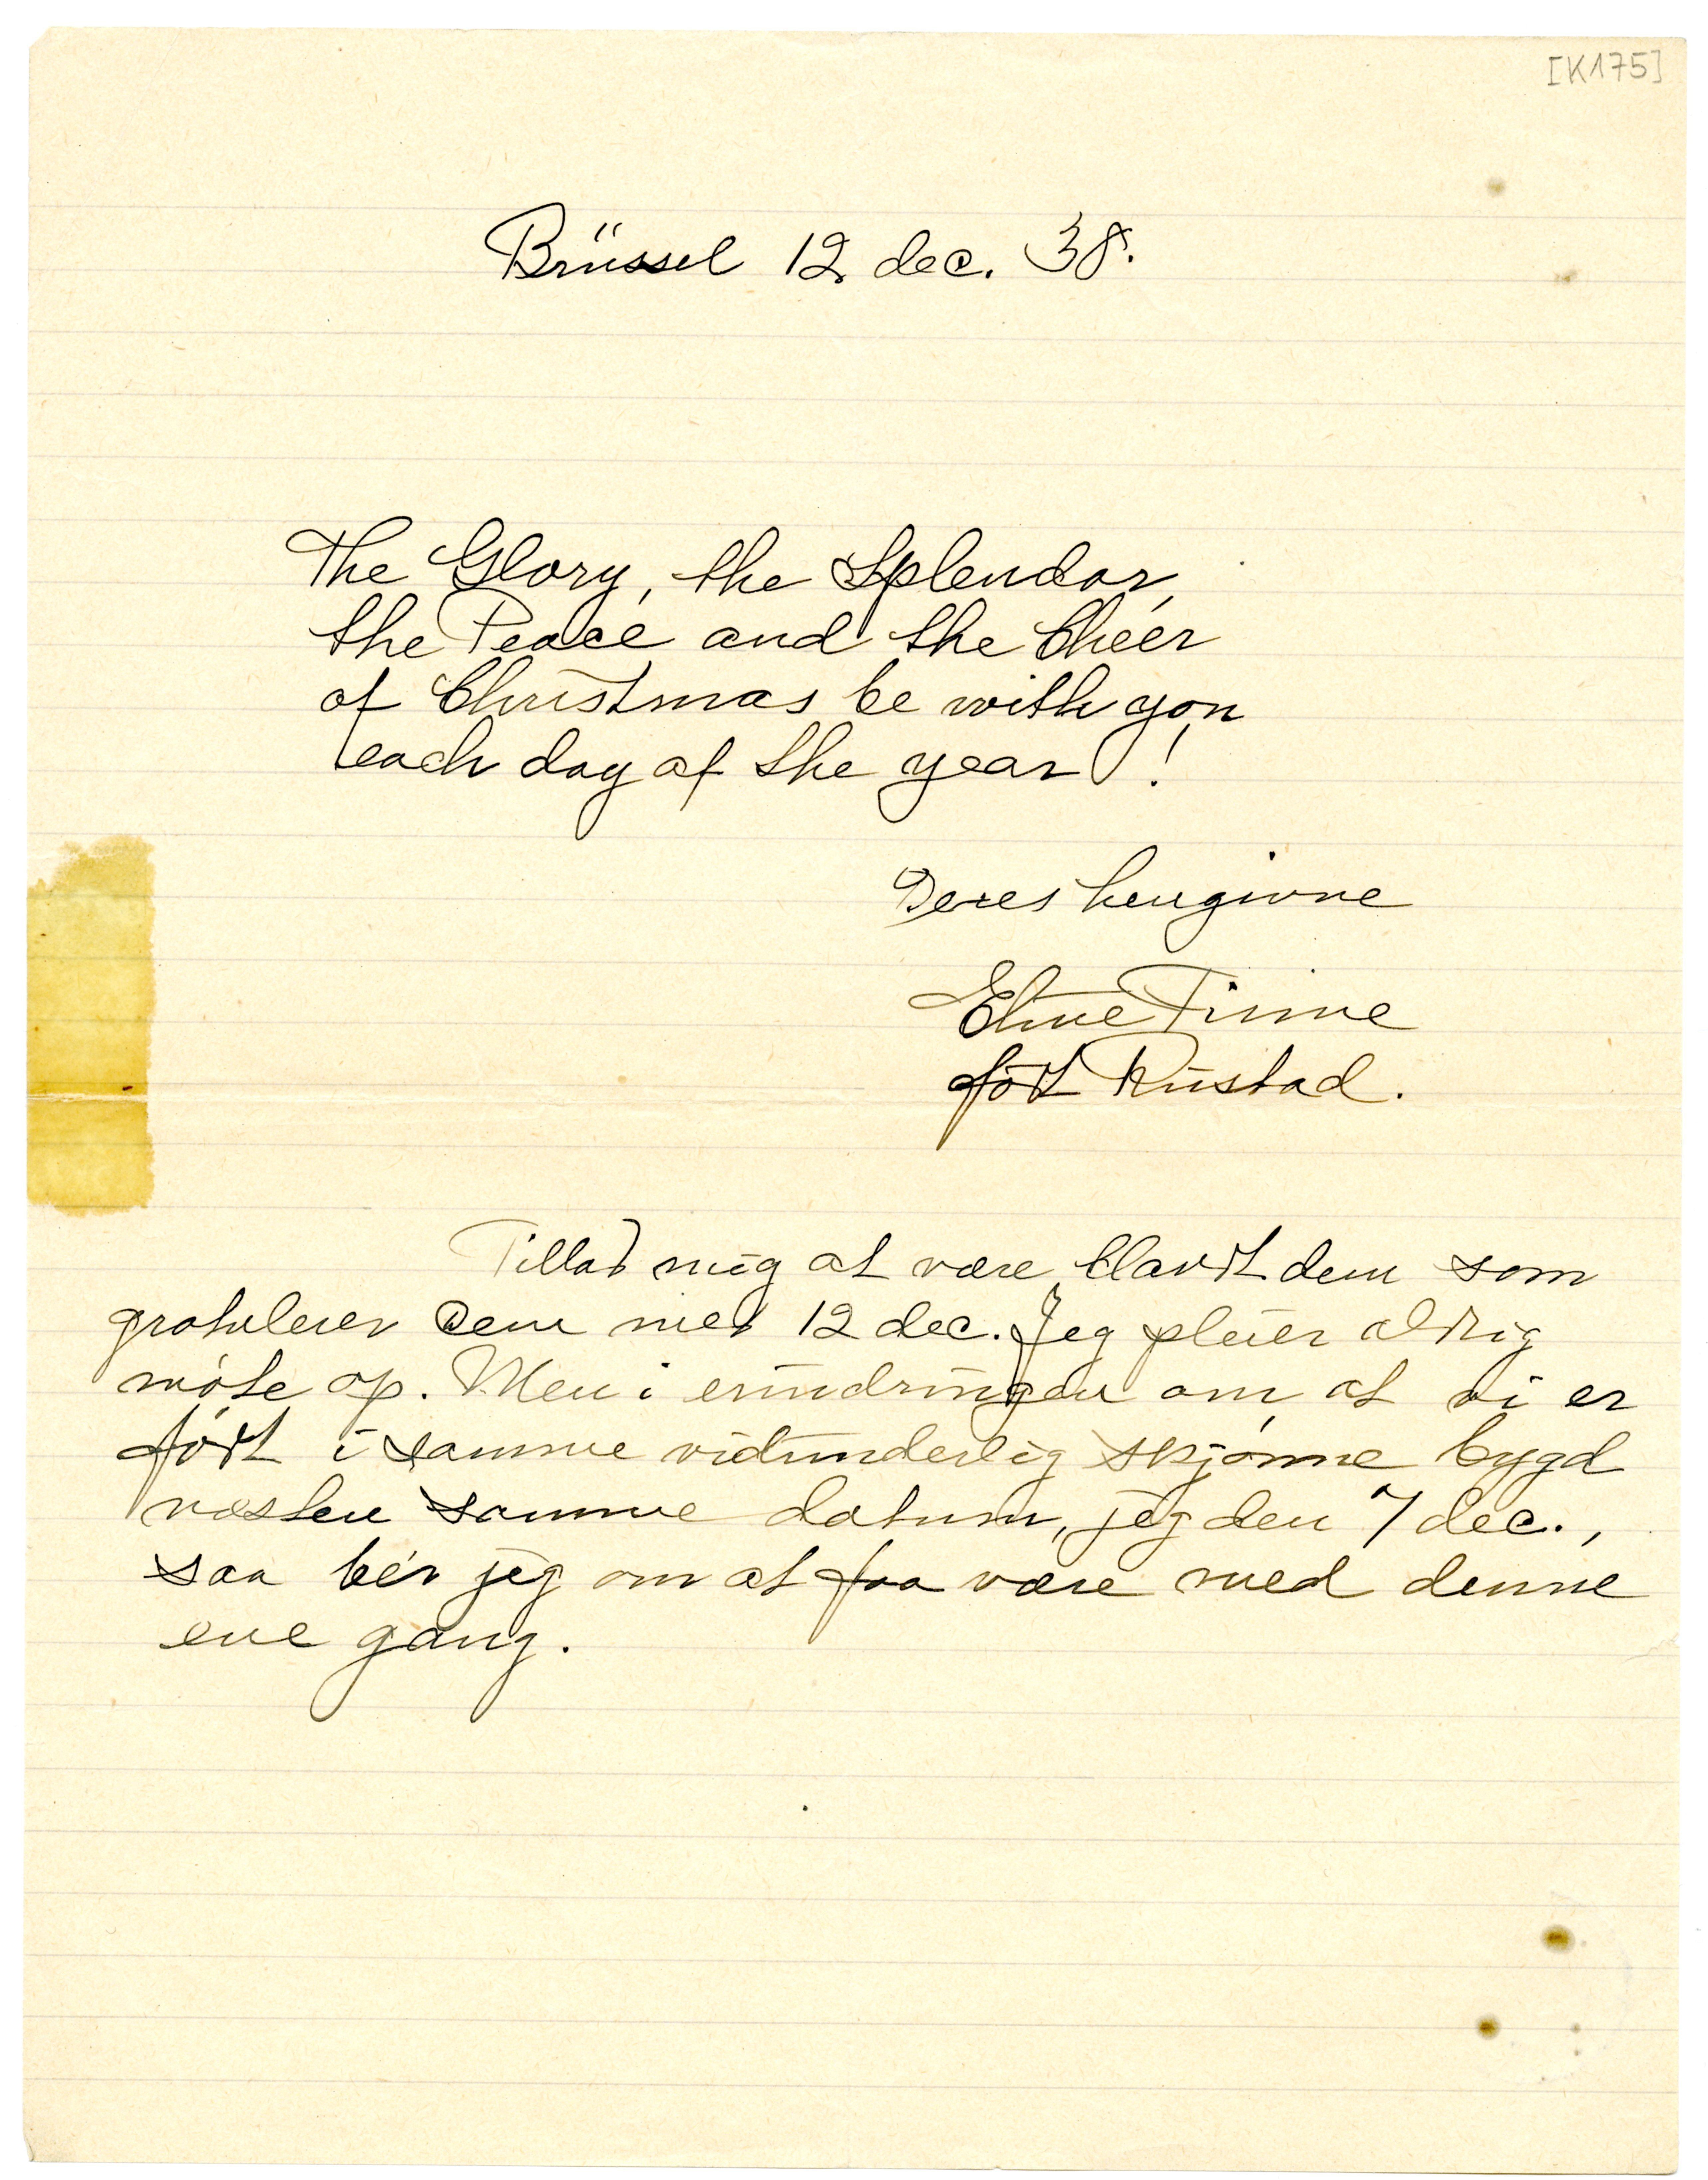 [K175]
Brüssel 12. dec. 38.
The Glory, the Splendor,
the Peace and the Cheer
of Christmas be with you
each day of the year!
Deres hengivne
Finne
född Rustad.
Tillad mig at være blandt dem som
gratulerer Dem med 12 dec. Jeg pleier aldrig
møte op. Men i erindringen om at vi er
født i samme vidunderlig skjønne bygd
næsten samme datum, jeg den 7 dec.,
saa bér jeg om at faa være med denne
ene gang.